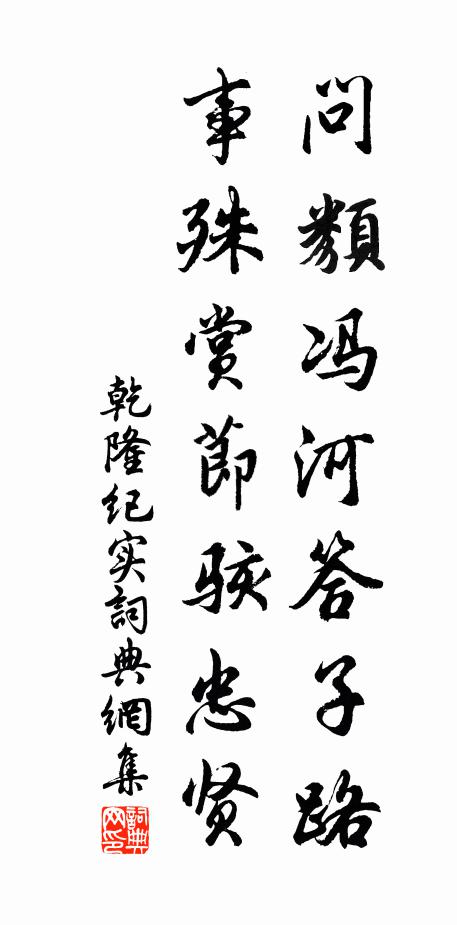 問類冯河答子路
事殊賞莭骇忠贤
乾隆纪实詞典網集
詞典
网印